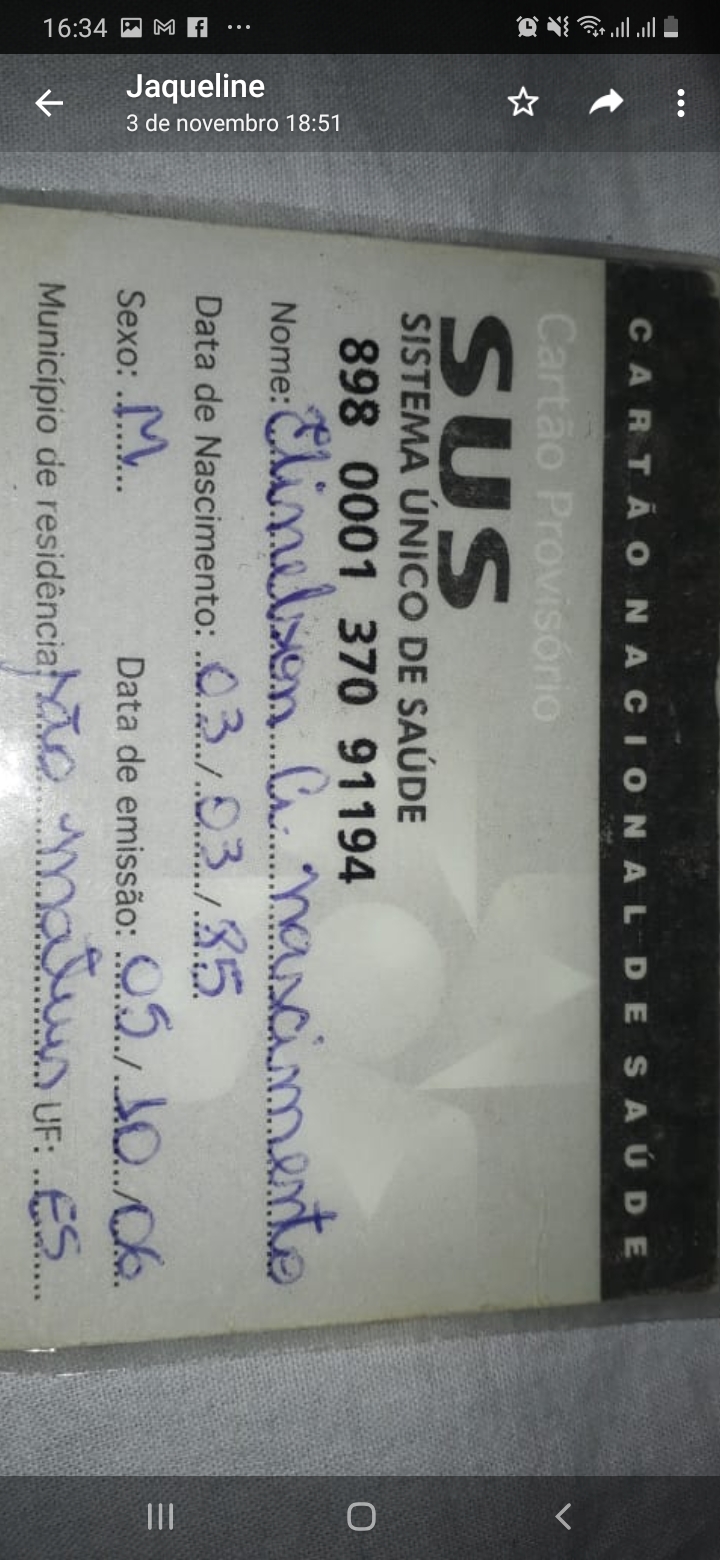 16:34
Jaqueline
3 de novembro 18:51
CARTÃO NACIONAL DE SAÚDE
Cartão Provisório
SUS
SISTEMA ÚNICO DE SAÚDE
898 0001 370 91194
Nome: nascimento
Data de Nascimento: 03/03/85
Sexo: M Data de emissão: 05/10/06
Município de residência: São mateus UF: ES